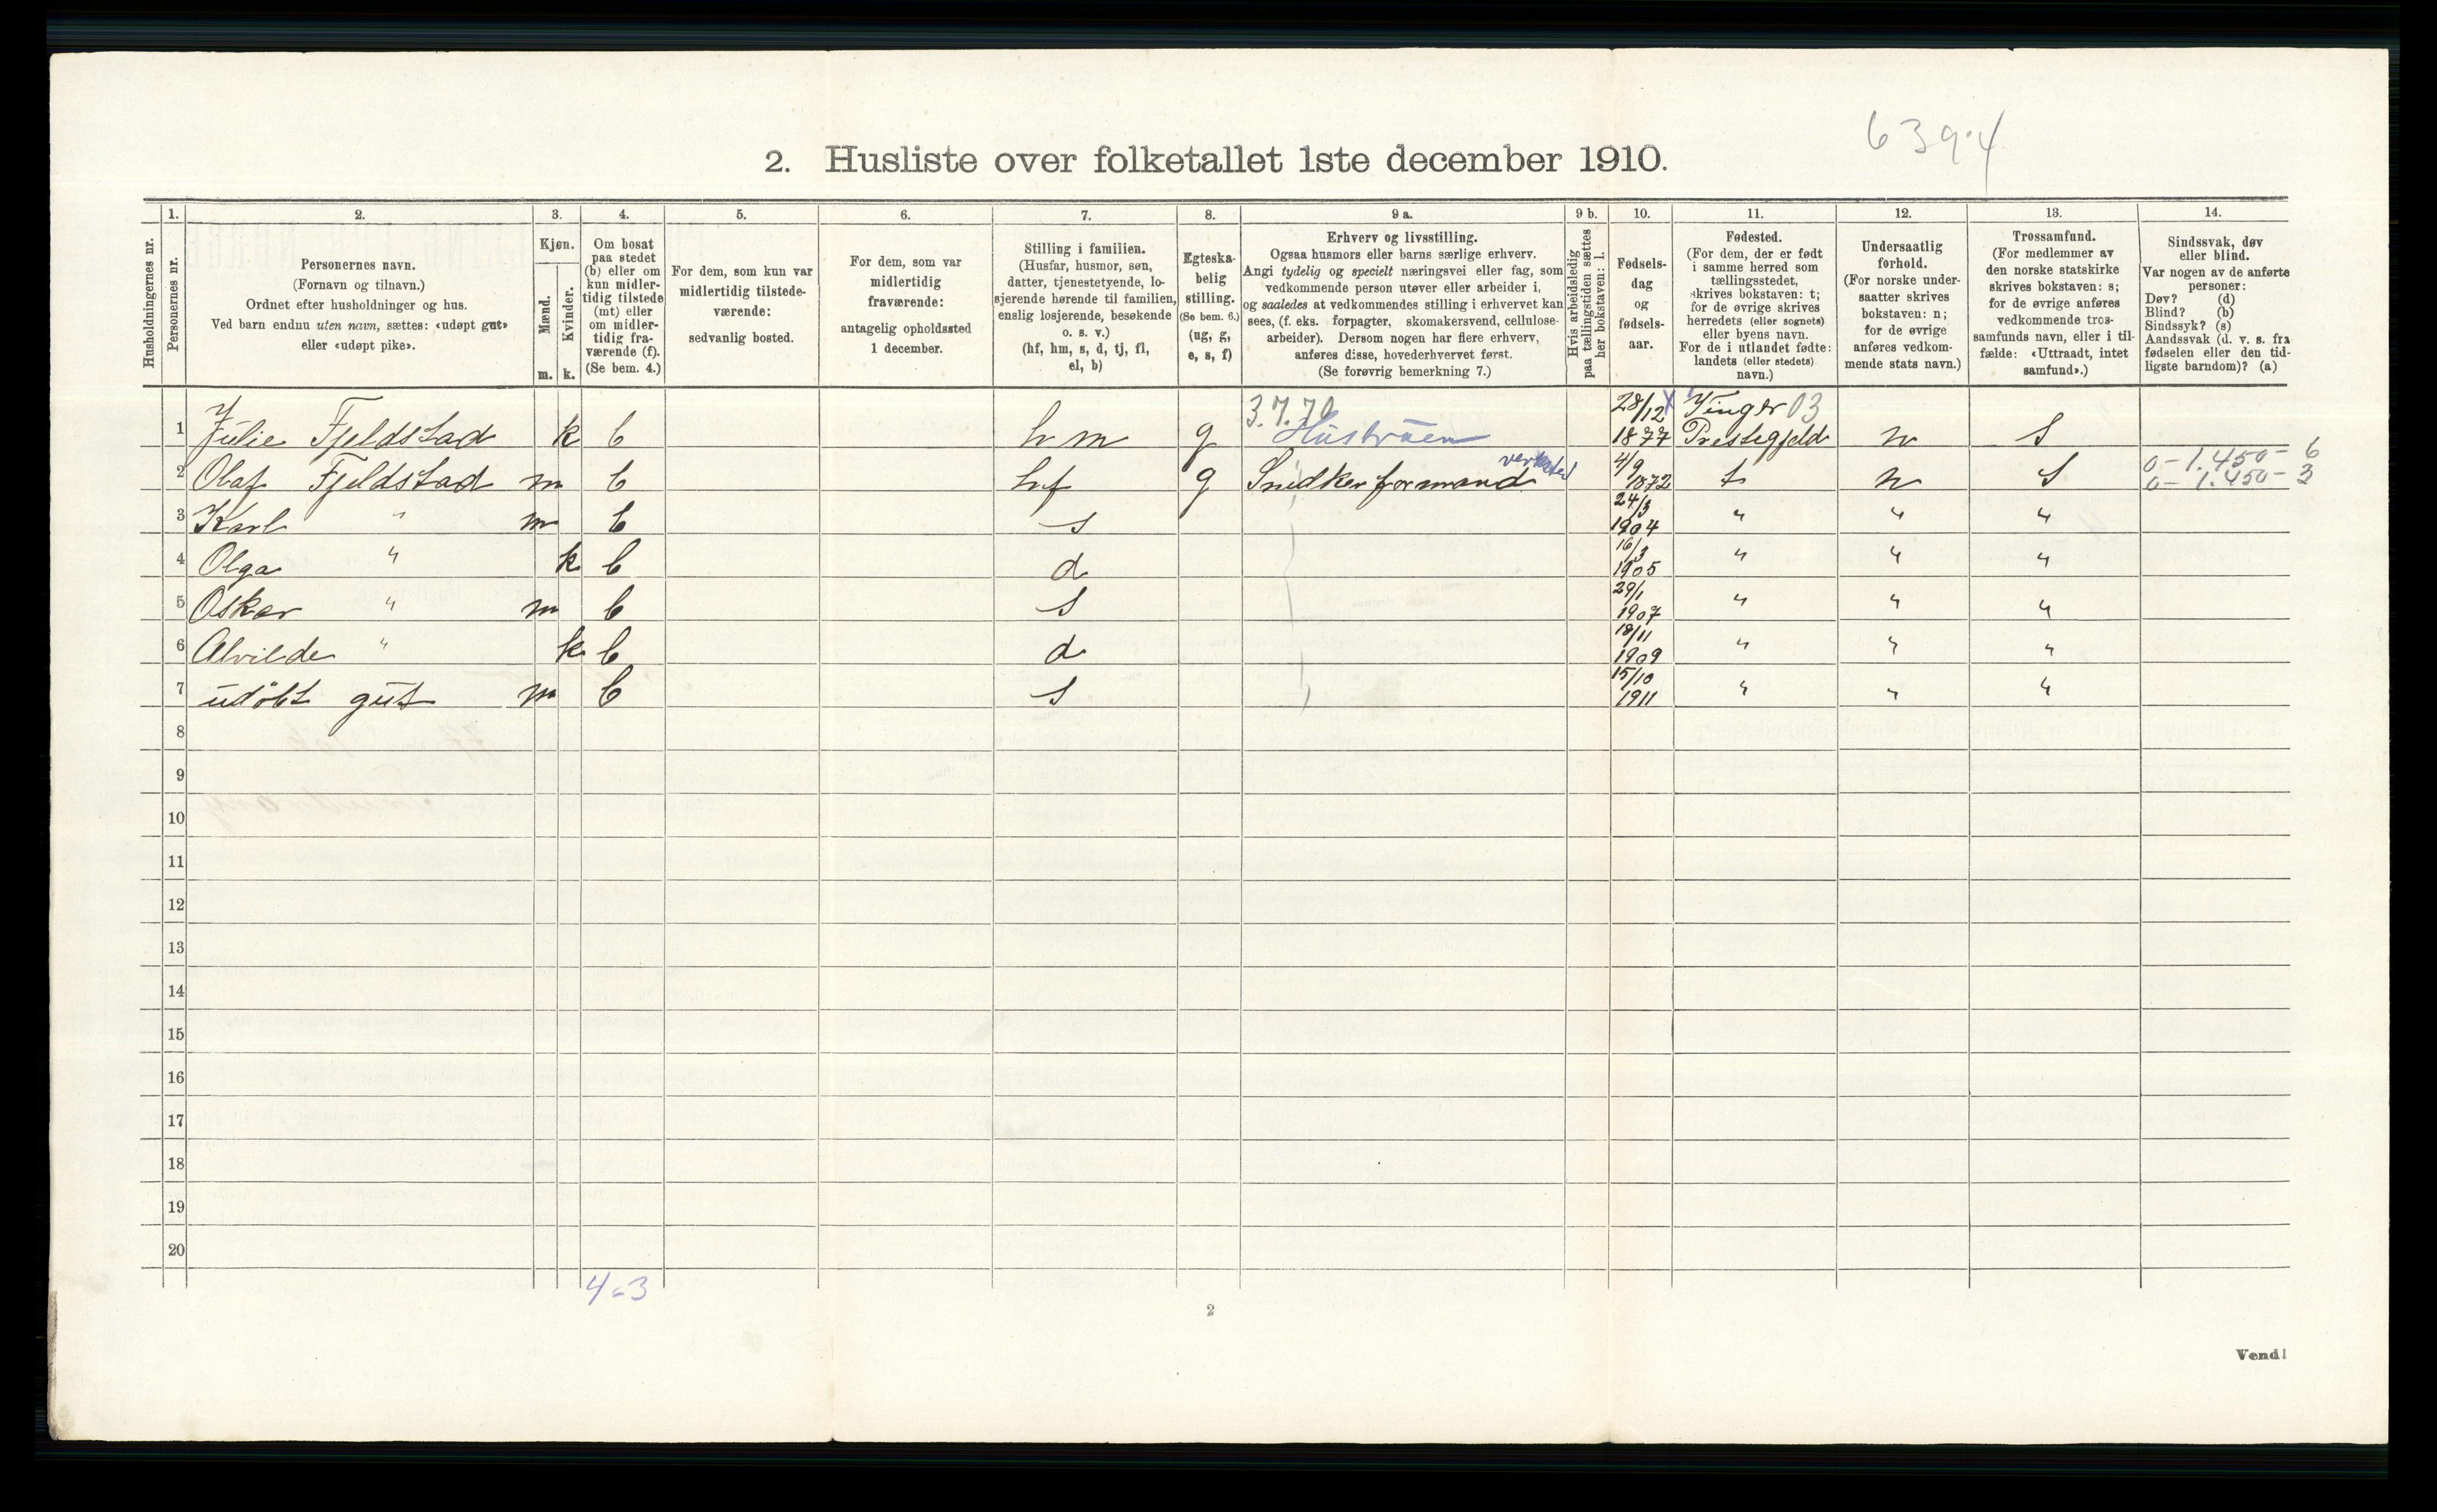 6394
2. Husliste over folketallet 1ste december 1910.
Husholdningernes nr.
1.
Personernes nr.
2.
Personernes navn.
(Fornavn og tilnavn.)
Ordnet efter husholdninger og hus.
Ved barn endnu uten navn, sættes: «udøpt gut»
eller «udøpt pike».
3.
Kjøn.
Mænd.
Kvinder.
m. k.
4.
Om bosat
paa stedet
(b) eller om
kun midler-
tidig tilstede
(mt) eller
om midler-
tidig fra-
værende (f).
(Se bem. 4.)
5.
For dem, som kun var
midlertidig tilstede-
værende:
sedvanlig bosted.
6.
For dem, som var
midlertidig
fraværende:
antagelig opholdssted
1 december.
7.
Stilling i familien.
(Husfar, husmor, søn,
datter, tjenestetyende, lo-
sjerende hørende til familien,
enslig losjerende, besøkende
o. s. v.)
(hf, hm, s, d, tj, fl,
el, b)
8.
Egteska-
belig
stilling.
(Se bem. 6.)
(ug, g,
e, s, f)
9 a.
Erhverv og livsstilling.
Ogsaa husmors eller barns særlige erhverv.
Angi tydelig og specielt næringsvei eller fag, som
vedkommende person utøver eller arbeider i,
og saaledes at vedkommendes stilling i erhvervet kan
sees, (f. eks. forpagter, skomakersvend, cellulose-
arbeider). Dersom nogen har flere erhverv,
anføres disse, hovederhvervet først.
(Se forøvrig bemerkning 7.)
9 b.
Hvis arbeidsledig
paa tællingstiden sættes
her bokstaven: l.
10.
Fødsels-
dag
og
fødsels-
aar.
11.
Fødested.
(For dem, der er født
i samme herred som
tællingsstedet,
skrives bokstaven: t;
for de øvrige skrives
herredets (eller sognets)
eller byens navn.
For de i utlandet fødte:
landets (eller stedets)
navn.)
12.
Undersaatlig
forhold.
(For norske under-
saatter skrives
bokstaven: n;
for de øvrige
anføres vedkom-
mende stats navn.)
13.
Trossamfund.
(For medlemmer av
den norske statskirke
skrives bokstaven: s;
for de øvrige anføres
vedkommende tros-
samfunds navn, eller i til-
fælde: «Uttraadt, intet
samfund».)
14.
Sindssvak, døv
eller blind.
Var nogen av de anførte
personer:
Døv? (d)
Blind? (b)
Sindssyk? (s)
Aandssvak (d. v. s. fra
fødselen eller den tid-
ligste barndom)? (a)
3.7.70 28/12 Vinger 03
1 Julie Fjeldstad k b hm g Hustruen 1877 Prestegjeld n S
2 Olaf Fjeldstad m b hf g Snedker formand verksted 4/9 1872 t n S 0-1.450-6
0-1.450-3
3 Karl " m b s 24/3 1904 " " "
4 Olga " k b d 16/3 1905 " " "
5 Oskar " m b s 29/1 1907 " " "
6 Alvilde " k b d 18/11 1909 " " "
7 udöbt gut m b s 15/10 1911 " " "
8
9
10
11
12
13
14
15
16
17
18
19
20
4-3
2
Vend!